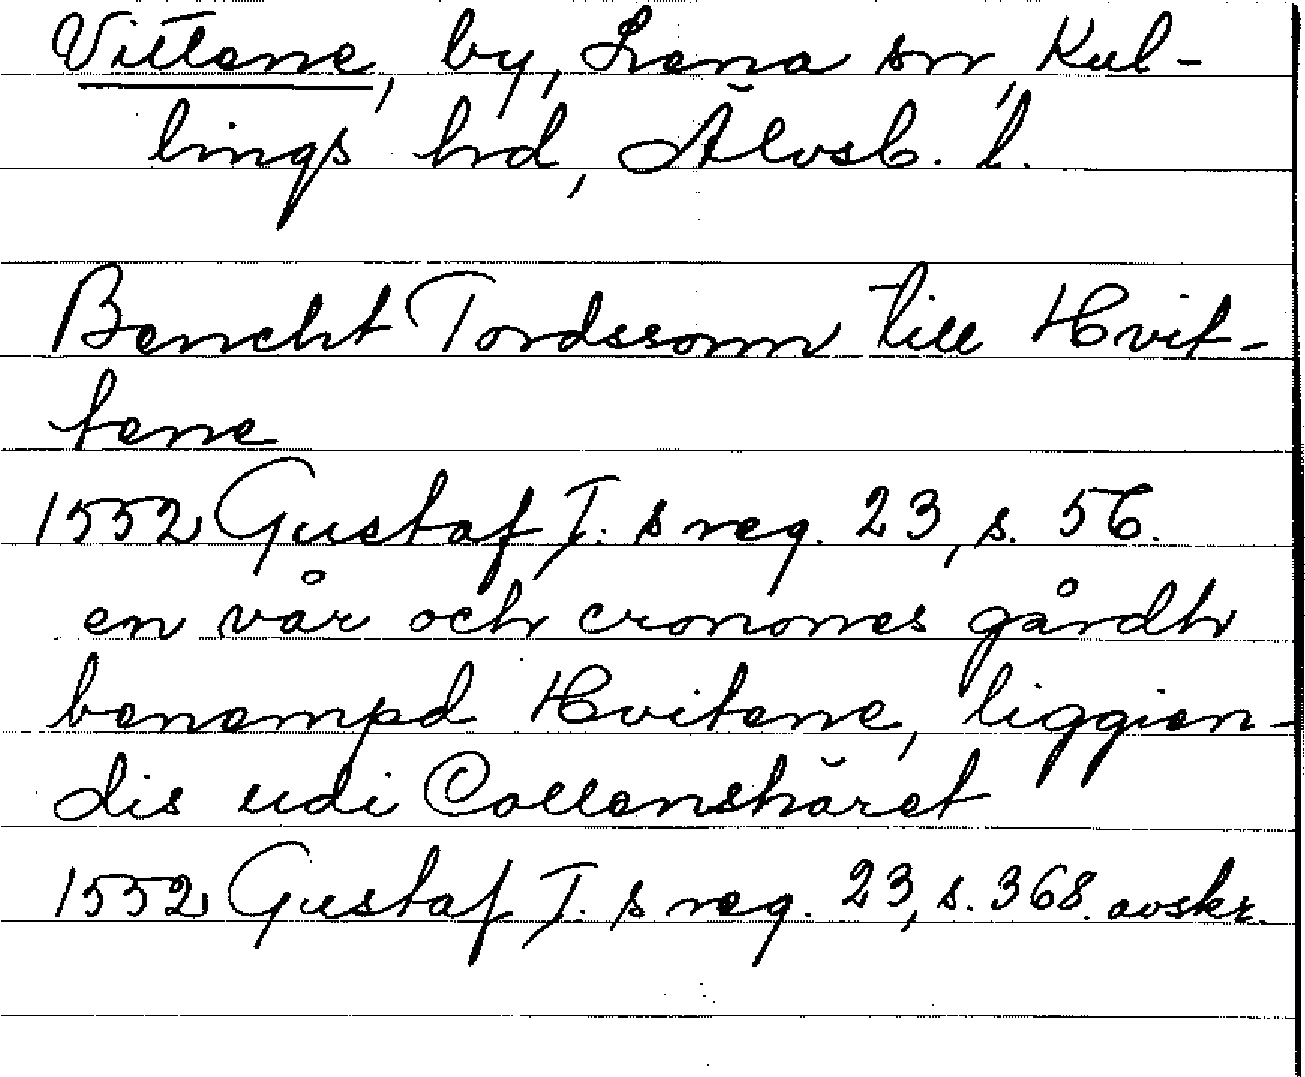 Vittene, by, Lena sn, Kul-
lings hd, Älvsb. l.
Bencht Tordssonn till Hvit-
tene
1552 Gustaf I:s reg. 23, s. 56.
en vår och cronones gårdh
benempd Hvitene, liggien-
dis udi Collenshäret
1552 Gustaf I:s reg. 23, s. 368. avskr.